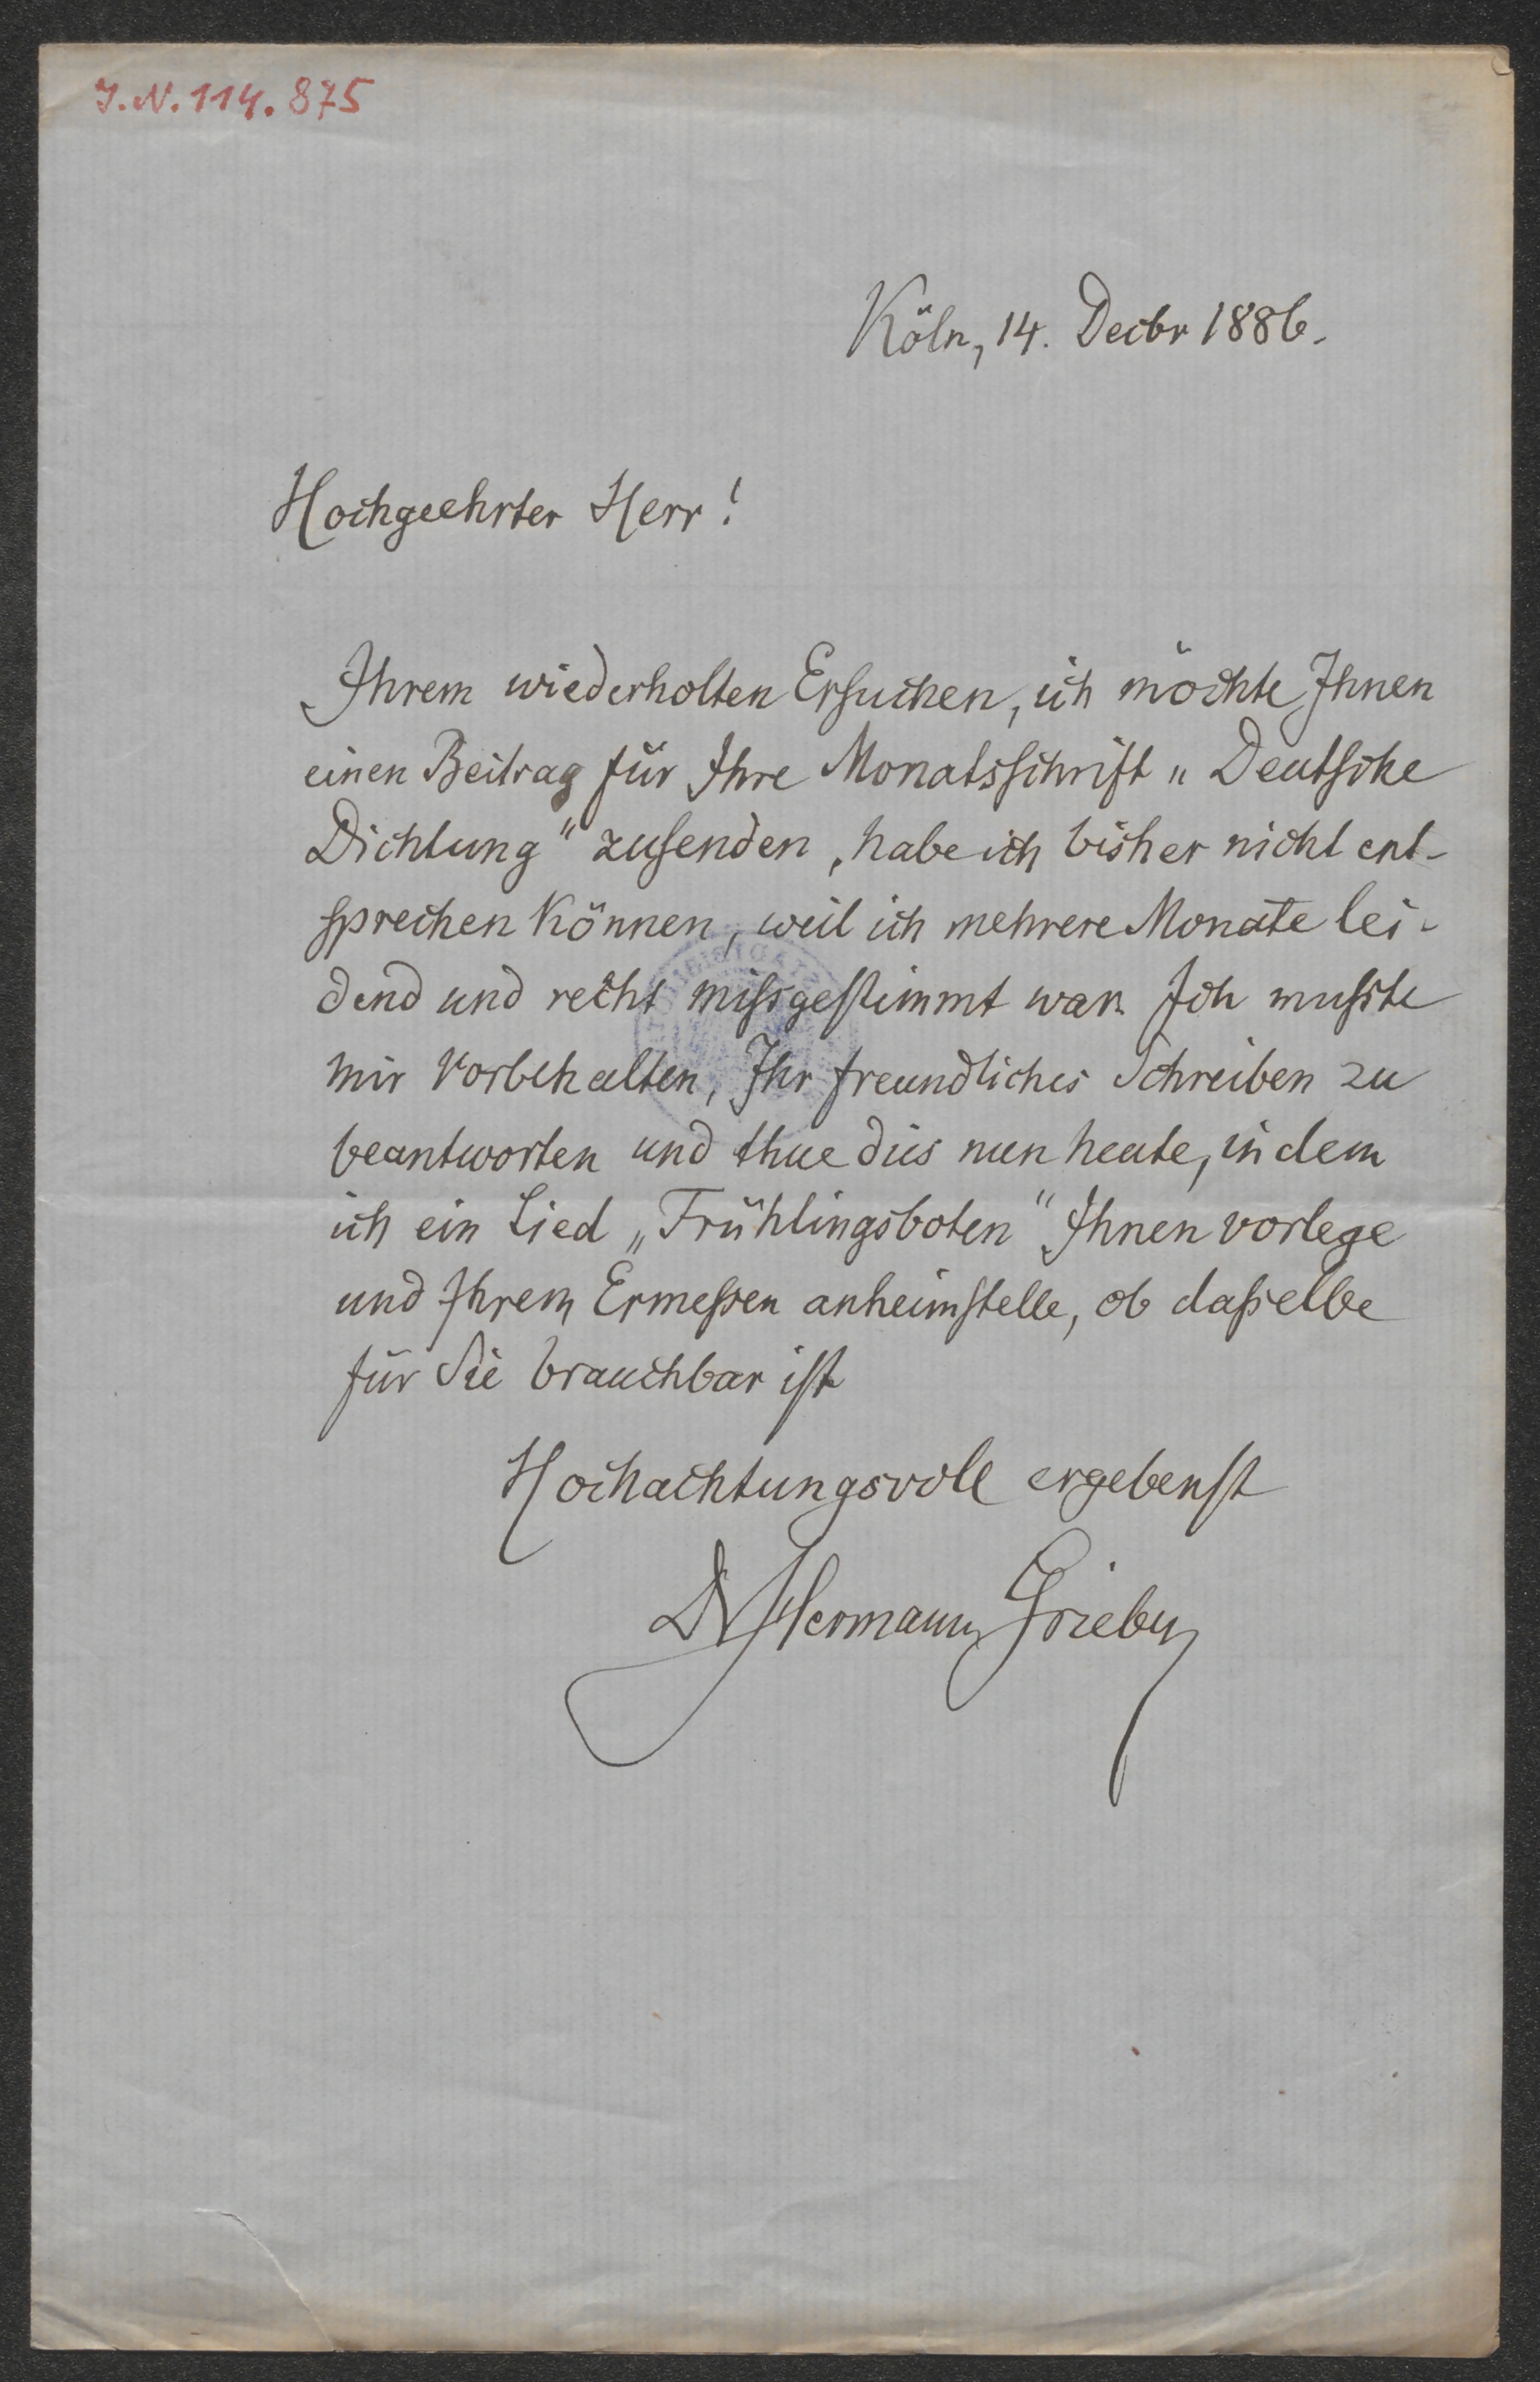 J.N. 114.875
Köln, 14. Decbr 1886.
Hochgeehrter Herr!
Ihrem wiederholten Ersuchen, ich möchte Ihnen
einen Beitrag für Ihre Monatsschrift „Deutsche
Dichtung" zusenden, habe ich bisher nicht ent-
sprechen können, weil ich mehrere Monate lei-
dend und recht missgestimmt war. Ich musste
mir vorbehalten, Ihr freundliches Schreiben zu
beantworten und thue dies nun heute, indem
ich ein Lied „Frühlingsboten" Ihnen vorlege
und Ihrem Ermessen anheimstelle, ob dasselbe
für Sie brauchbar ist
Hochachtungsvoll ergebenst
Dr Hermann Grieben